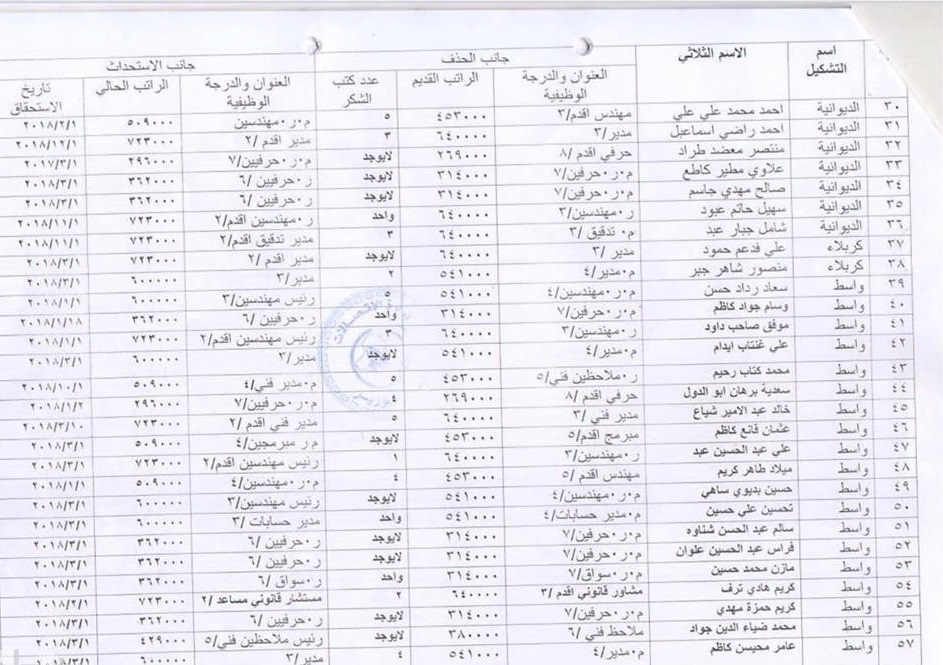 اسم التشكيل الاسم الثلاثي جانب الحذف جانب الاستحداث
العنوان والدرجة الوظيفية الراتب القديم عدد كتب الشكر العنوان والدرجة الوظيفية الراتب الحالي تاريخ الاستحقاق
٣٠ الديوانية احمد محمد علي علي مهندس اقدم/٣ ٤٥٣٠٠٠ ٥ م٠ر٠مهندسين ٥٠٩٠٠٠ ٢٠١٨/٢/١
٣١ الديوانية احمد راضي اسماعيل مدير/٣ ٦٤٠٠٠٠ ٣ مدير اقدم /٢ ٧٢٣٠٠٠ ٢٠١٨/١٢/١
٣٢ الديوانية منتصر معضد طراد حرفي اقدم /٨ ٢٦٩٠٠٠ لايوجد م٠ر٠حرفيين/٧ ٢٩٦٠٠٠ ٢٠١٧/٣/١
٣٣ الديوانية علاوي مطير كاطع م٠ر٠حرفين/٧ ٣١٤٠٠٠ لايوجد ر٠حرفيين /٦ ٣٦٢٠٠٠ ٢٠١٨/٣/١
٣٤ الديوانية صالح مهدي جاسم م٠ر٠حرفين/٧ ٣١٤٠٠٠ لايوجد ر٠حرفيين /٦ ٣٦٢٠٠٠ ٢٠١٨/٣/١
٣٥ الديوانية سهيل حاتم عبود ر٠مهندسين/٣ ٦٤٠٠٠٠ واحد ر٠مهندسين اقدم/٢ ٧٢٣٠٠٠ ٢٠١٨/١١/١
٣٦ الديوانية شامل جبار عبد م٠ تدقيق /٣ ٦٤٠٠٠٠ ٣ مدير تدقيق اقدم/٢ ٧٢٣٠٠٠ ٢٠١٨/١١/١
٣٧ كربلاء علي فدعم حمود مدير /٣ ٦٤٠٠٠٠ لايوجد مدير اقدم /٢ ٧٢٣٠٠٠ ٢٠١٨/٣/١
٣٨ كربلاء منصور شاهر جبر م٠مدير/٤ ٥٤١٠٠٠ ٢ مدير/٣ ٦٠٠٠٠٠ ٢٠١٨/٣/١
٣٩ واسط سعاد رداد حسن م٠ر٠مهندسين/٤ ٥٤١٠٠٠ ٥ رئيس مهندسين/٣ ٦٠٠٠٠٠ ٢٠١٨/١/١
٤٠ واسط وسام جواد كاظم م٠ر٠حرفين/٧ ٣١٤٠٠٠ واحد ر٠حرفيين /٦ ٣٦٢٠٠٠ ٢٠١٨/١/١٨
٤١ واسط موفق صاحب داود ر٠مهندسين/٣ ٦٤٠٠٠٠ ٣ رئيس مهندسين اقدم/٢ ٧٢٣٠٠٠ ٢٠١٨/١/١
٤٢ واسط علي غنتاب ايدام م٠مدير/٤ ٥٤١٠٠٠ لايوجد مدير/٣ ٦٠٠٠٠٠ ٢٠١٨/٣/١
٤٣ واسط محمد كتاب رحيم ر٠ملاحظين فني/٥ ٤٥٣٠٠٠ ٥ م٠مدير فني/٤ ٥٠٩٠٠٠ ٢٠١٨/١٠/١
٤٤ واسط سعدية برهان ابو الدول حرفي اقدم /٨ ٢٦٩٠٠٠ ٤ م٠ر٠حرفيين/٧ ٢٩٦٠٠٠ ٢٠١٨/١/٢
٤٥ واسط خالد عبد الامير شياع مدير فني /٣ ٦٤٠٠٠٠ ٥ مدير فني اقدم /٢ ٧٢٣٠٠٠ ٢٠١٨/٣/١٠
٤٦ واسط عثمان قانع كاظم مبرمج اقدم/٥ ٤٥٣٠٠٠ لايوجد م ر مبرمجين/٤ ٥٠٩٠٠٠ ٢٠١٨/٣/١
٤٧ واسط علي عبد الحسين عبد ر٠مهندسين/٣ ٦٤٠٠٠٠ ١ رئيس مهندسين اقدم/٢ ٧٢٣٠٠٠ ٢٠١٨/٣/١
٤٨ واسط ميلاد طاهر كريم مهندس اقدم /٥ ٤٥٣٠٠٠ ٤ م٠ر٠مهندسين/٤ ٥٠٩٠٠٠ ٢٠١٨/١/١
٤٩ واسط حسين بديوي ساهي م٠ر٠مهندسين/٤ ٥٤١٠٠٠ لايوجد رئيس مهندسين/٣ ٦٠٠٠٠٠ ٢٠١٨/٣/١
٥٠ واسط تحسين علي حسين م٠مدير حسابات/٤ ٥٤١٠٠٠ واحد مدير حسابات /٣ ٦٠٠٠٠٠ ٢٠١٨/٣/١
٥١ واسط سالم عبد الحسن شناوه م٠ر٠حرفين/٧ ٣١٤٠٠٠ لايوجد ر٠حرفيين /٦ ٣٦٢٠٠٠ ٢٠١٨/٣/١
٥٢ واسط فراس عبد الحسين علوان م٠ر٠حرفين/٧ ٣١٤٠٠٠ لايوجد ر٠حرفيين /٦ ٣٦٢٠٠٠ ٢٠١٨/٣/١
٥٣ واسط مازن محمد حسين م٠ر٠سواق/٧ ٣١٤٠٠٠ واحد ر٠سواق /٦ ٣٦٢٠٠٠ ٢٠١٨/٣/١
٥٤ واسط كريم هادي ترف مشاور قانوني اقدم /٣ ٦٤٠٠٠٠ ٢ مستشار قانوني مساعد /٢ ٧٢٣٠٠٠ ٢٠١٨/٢/١
٥٥ واسط كريم حمزة مهدي م٠ر٠حرفين/٧ ٣١٤٠٠٠ لايوجد ر٠حرفيين /٦ ٣٦٢٠٠٠ ٢٠١٨/٣/١
٥٦ واسط محمد ضياء الدين جواد ملاحظ فني /٦ ٣٨٠٠٠٠ لايوجد رئيس ملاحظين فني/٥ ٤٢٩٠٠٠ ٢٠١٨/٣/١
٥٧ واسط عامر محيسن كاظم م٠مدير/٤ ٥٤١٠٠٠ ٤ مدير/٣ ٦٠٠٠٠٠ ٢٠١٨/٣/١